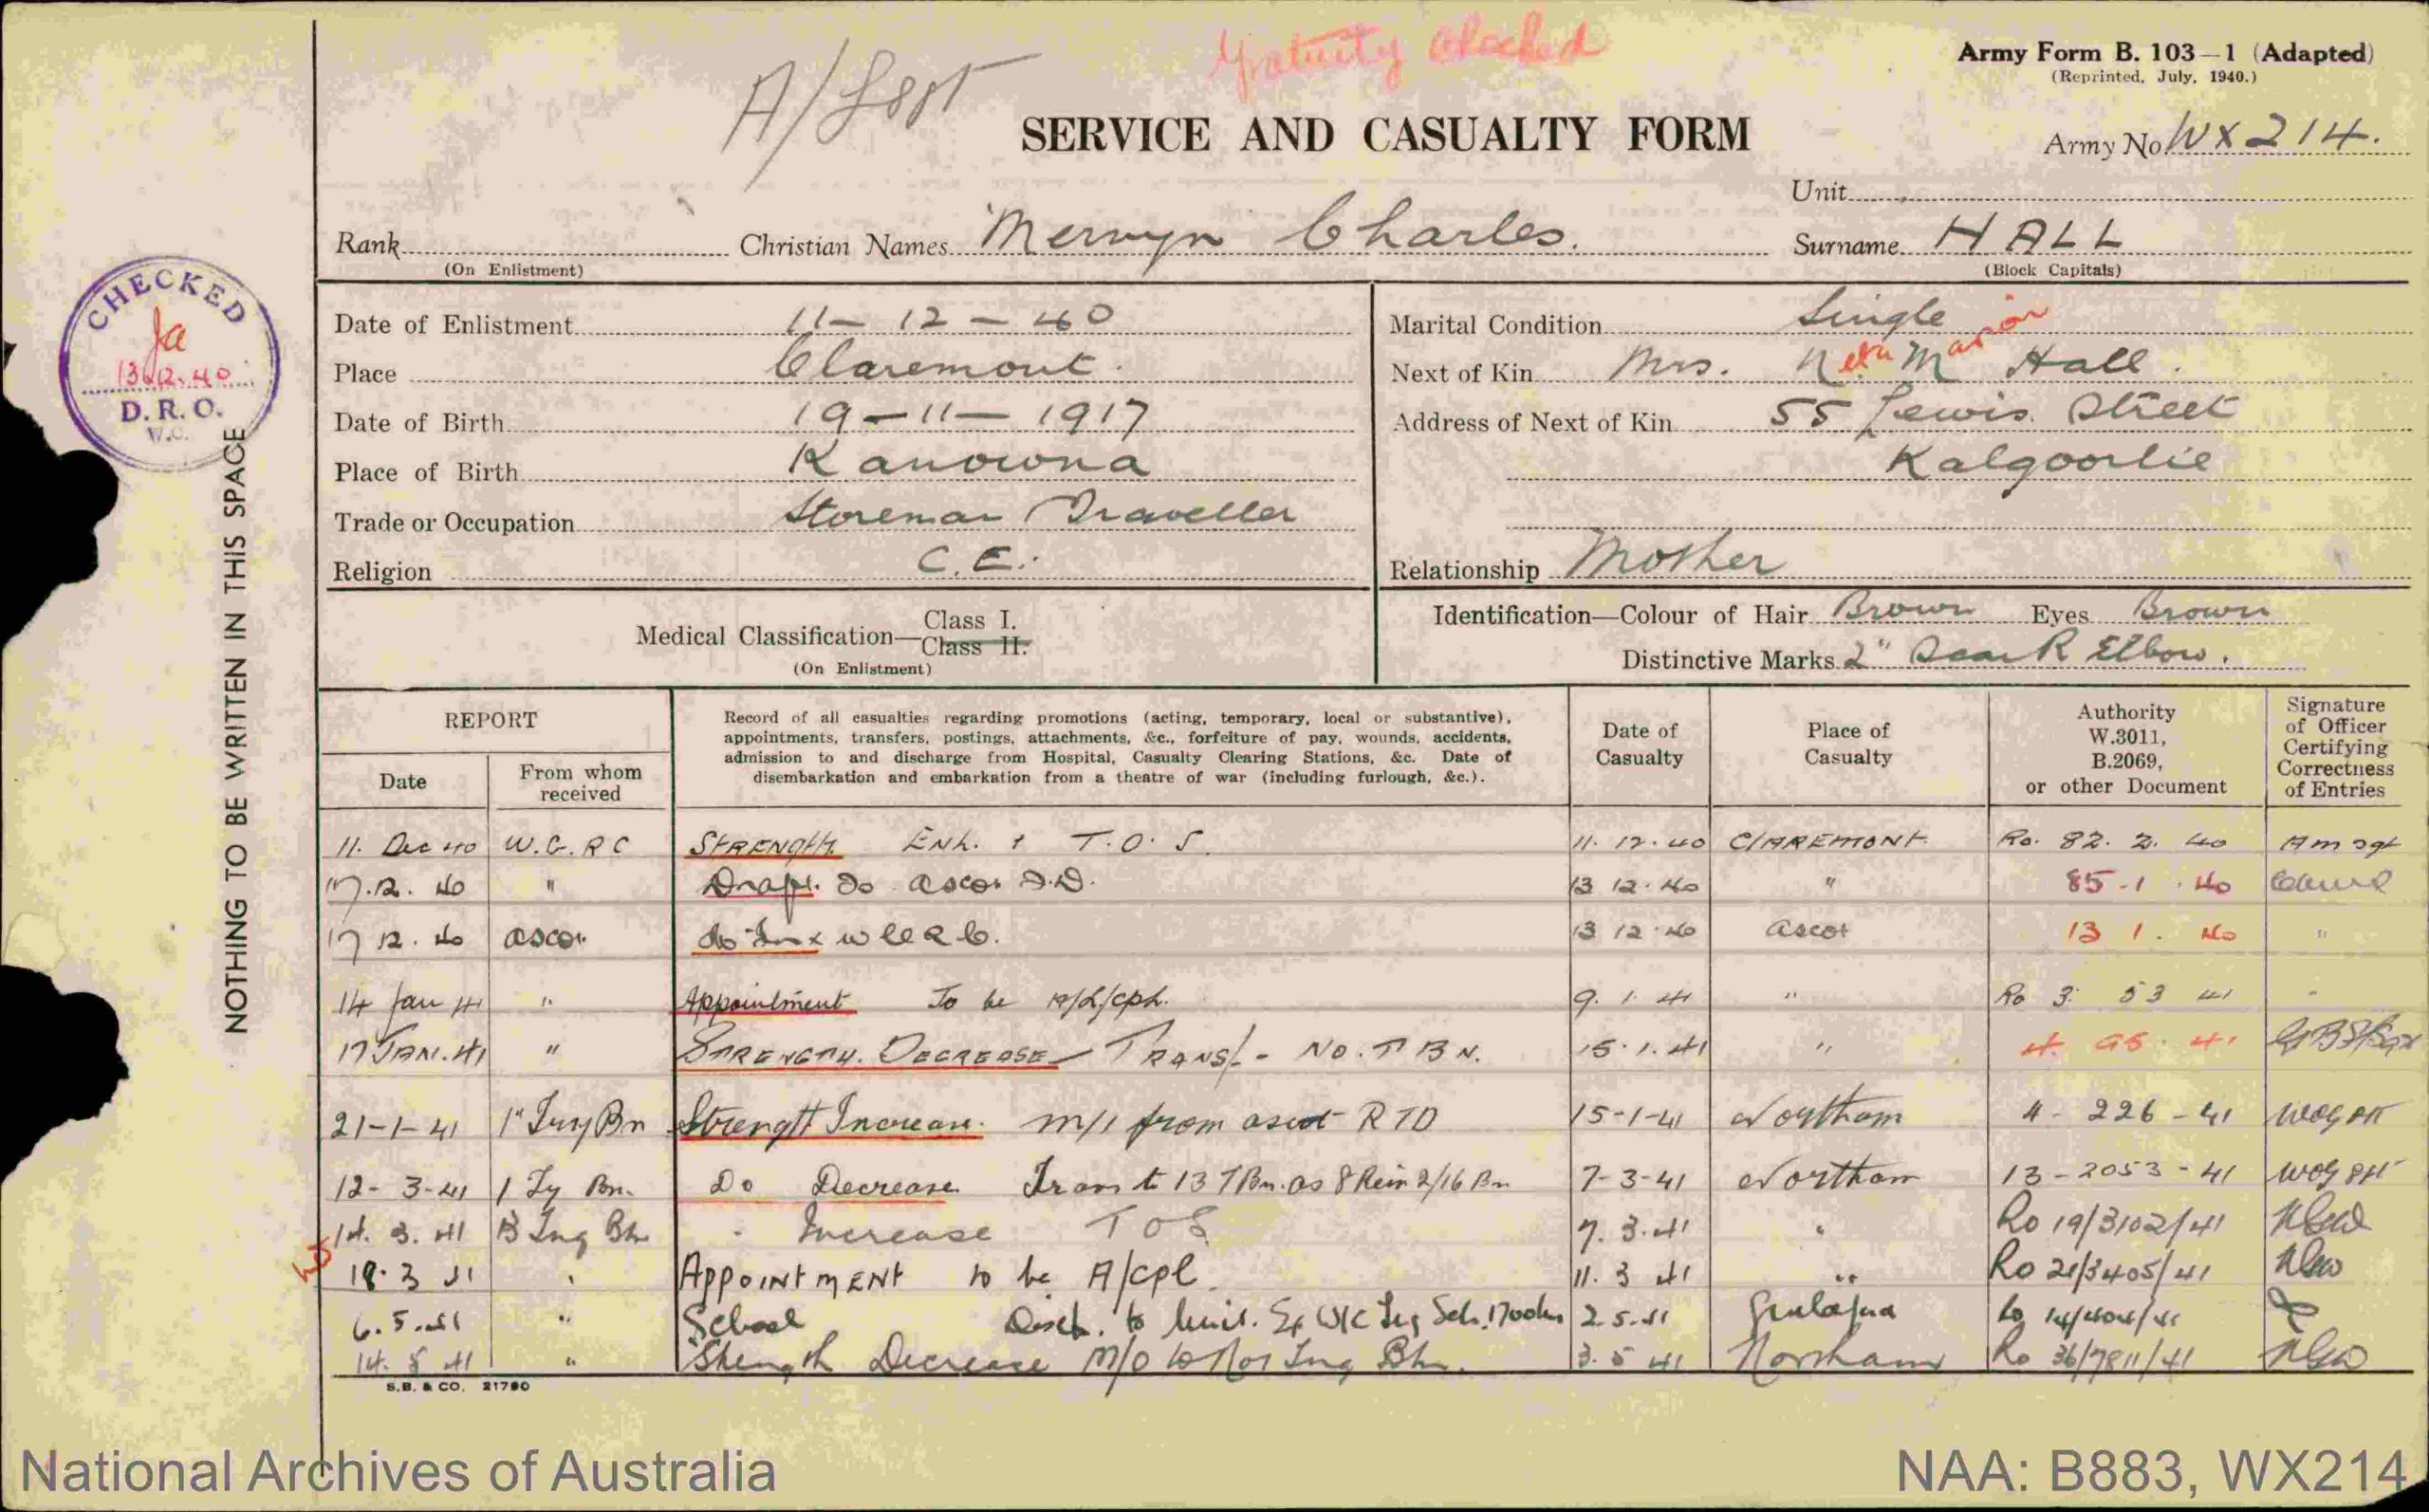 Gratuity Checked
Army Form B. 103—1 (Adapted)
(Reprinted, July, 1940.)
A/Sgt
SERVICE AND CASUALTY FORM
Army No. WX 214.
Unit
Rank
(On Enlistment)
Christian Names Mervyn Charles.
Surname HALL
(Block Capitals)
CHECKED
13.12.40
D.R.O.
W.C.
NOTHING TO BE WRITTEN IN THIS SPACE
Date of Enlistment 11 - 12 - 40
Place Claremont.
Date of Birth 19 - 11 - 1917
Place of Birth Kanowna
Trade or Occupation Storeman Traveller
Religion C.E.
Marital Condition Single
Next of Kin Mrs. Marion Hall.
Address of Next of Kin 55 Lewis Street
Kalgoorlie
Relationship Mother
Medical Classification—Class I.
Class II.
(On Enlistment)
Identification—Colour of Hair Brown Eyes Brown
Distinctive Marks 2" Scar R Elbow.
REPORT
Date
From whom received
Record of all casualties regarding promotions (acting, temporary, local or substantive),
appointments, transfers, postings, attachments, &c., forfeiture of pay, wounds, accidents,
admission to and discharge from Hospital, Casualty Clearing Stations, &c. Date of
disembarkation and embarkation from a theatre of war (including furlough, &c.).
Date of Casualty
Place of Casualty
Authority W.3011, B.2069, or other Document
Signature of Officer Certifying Correctness of Entries
11. Dec 40 W.C.RC STRENGTH Enl. & T.O.S. 11. 12. 40 CLAREMONT Ro. 82. 2. 40
17.12. 40 " to Ascot 13 12. 40 " 85.1. 40
17 12. 40 Ascot 13 12. 40 Ascot 13 1. 40 "
14 Jan 41 " Appointment To be A/L/Cpl. 9. 1. 41 " Ro 3. 53 41
17 JAN. 41 " STRENGTH. DECREASE - TRANS/. - NO. T BN. 15. 1. 41 " 4. 95. 41
21-1-41 1st Trg Bn Strength Increase. m/i from Ascot RTD 15-1-41 Northam 4 - 226 - 41
12-3-41 1 Tg Bn. Do Decrease Trans to 13 T Bn. as 8 Rein 2/16 Bn 7-3-41 Northam 13 - 2053 - 41
14. 3. 41 13 Tng Bn - Increase TOS 7. 3. 41 " Ro 19/3102/41
18. 3 41 " APPOINTMENT to be A/Cpl. 11. 3 41 " Ro 21/3405/41
6. 5. 41 " School to Unit. Ex W/C Trg Sch. 2. 5. 41
14. 5 41 " Strength Decrease M/O to No 1 Tng Bn. 3. 5 41 Northam Ro 36/7811/41
S.B. & CO. 21780
National Archives of Australia
NAA: B883, WX214